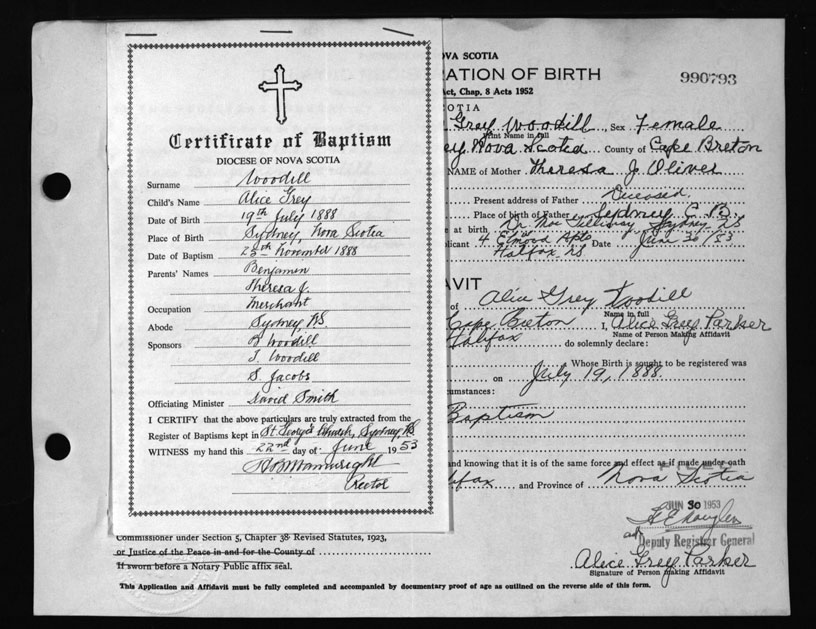 Certificate of Baptism
DIOCESE OF NOVA SCOTIA
Surname Woodill
Child's Name Alice Grey
Date of Birth 19th July 1888
Place of Birth Sydney, Nova Scotia
Date of Baptism 25th November 1888
Parents' Names Benjamin
Theresa J.
Occupation Merchant
Abode Sydney NS
Sponsors B Woodill
T. Woodill
S. Jacobs
Officiating Minister David Smith
I CERTIFY that the above particulars are truly extracted from the
Register of Baptisms kept in St. George's Church, Sydney NS
WITNESS my hand this 22nd day of June 1953
Rector
OVA SCOTIA
ATION OF BIRTH
990793
Act, Chap. 8 Acts 1952
COTIA
Grey Woodill, Sex Female
Print Name in full
ey Nova Scotia County of Cape Breton
NAME of Mother Theresa J. Oliver
Present address of Father Deceased
Place of birth of Father Sydney C.B.
e at birth Dr. Sydney NS
plicant 4 Elmood Apts Date June 30/53
Halifax NS
AVIT
of Alice Grey Woodill
Name in full
Cape Breton I, Alice Grey Parker
Name of Person Making Affidavit
Halifax do solemnly declare:
Whose Birth is sought to be registered was
on July 19, 1888
cumstances:
Baptism
and knowing that it is of the same force and effect as if made under oath
lifax and Province of Nova Scotia
JUN 30 1953
Deputy Registrar General
Commissioner under Section 5, Chapter 38 Revised Statutes, 1923,
or Justice of the Peace in and for the County of
If sworn before a Notary Public affix seal.
Alice Grey Parker
Signature of Person making Affidavit
This Application and Affidavit must be fully completed and accompanied by documentary proof of age as outlined on the reverse side of this form.